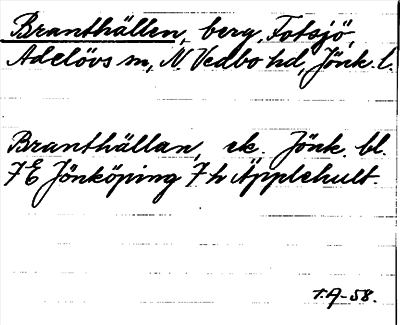 Branthällen, berg, Fotsjö,
Adelövs sn, N Vedbo hd, Jönk. l.
Branthällan, ek. Jönk. bl.
7E Jönköping 7 h Äpplehult.
T.A-58.